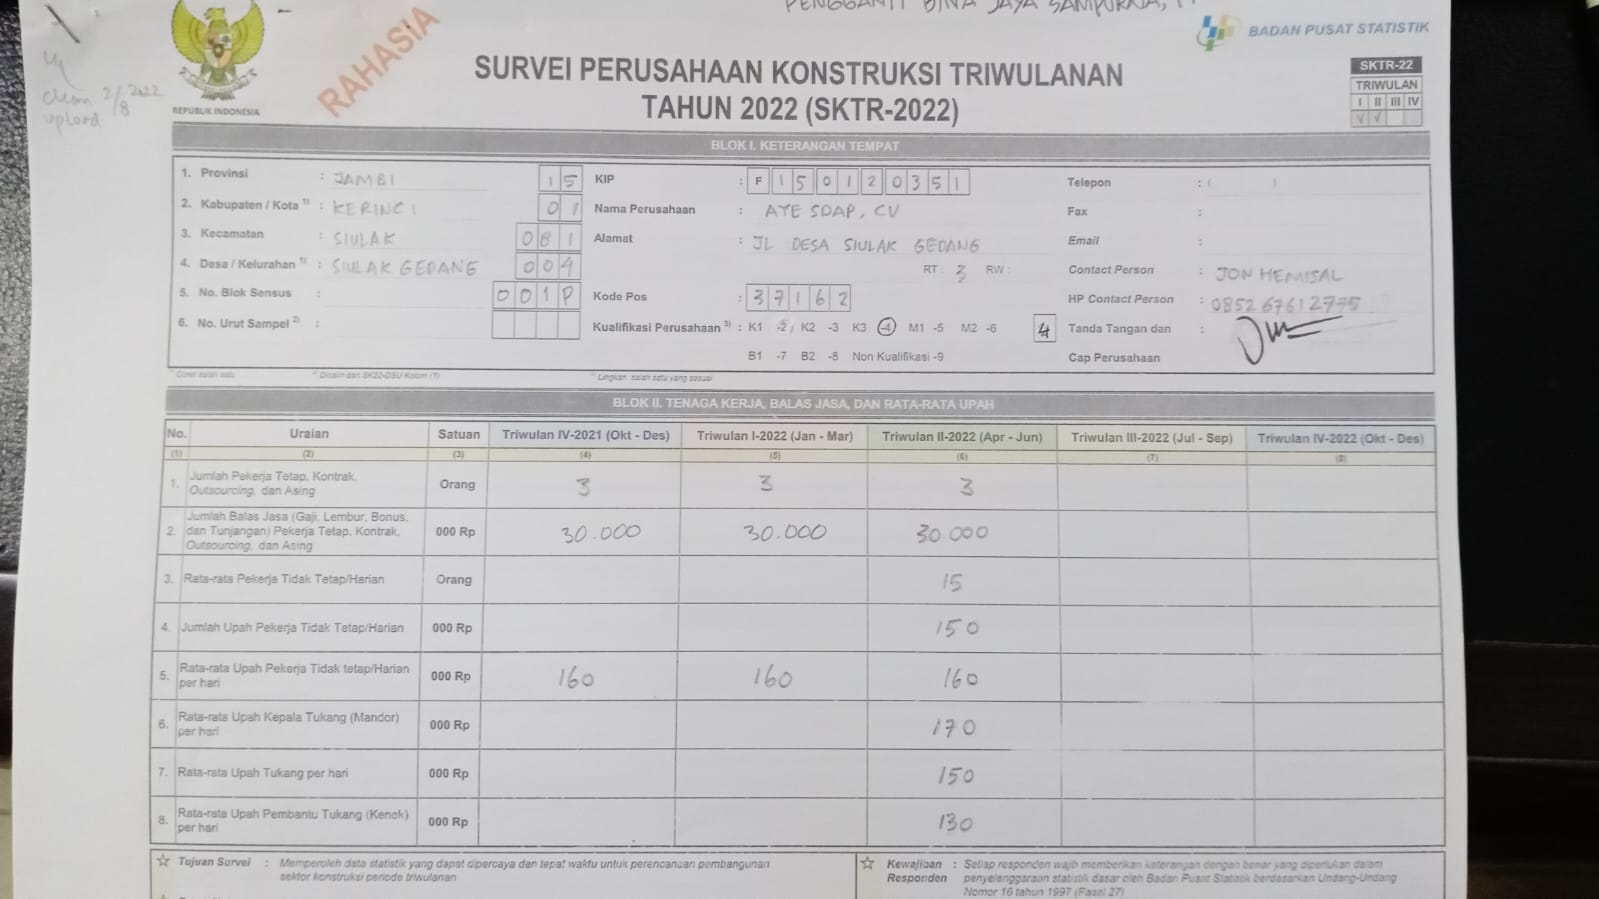 PENGGANTI BINA JAYA SAMPURNA, PT
BADAN PUSAT STATISTIK
RAHASIA
REPUBLIK INDONESIA
Clean 2/8 2022
upload
SURVEI PERUSAHAAN KONSTRUKSI TRIWULANAN
TAHUN 2022 (SKTR-2022)
SKTR-22
TRIWULAN
I II III IV
V V
BLOK I. KETERANGAN TEMPAT
1. Provinsi : JAMBI 15
2. Kabupaten / Kota 1) : KERINCI 01
3. Kecamatan : SIULAK 081
4. Desa / Kelurahan 1) : SIULAK GEDANG 004
5. No. Blok Sensus : 001P
6. No. Urut Sampel 2) :
KIP : F 150120351
Nama Perusahaan : AYE SDAP, CV
Alamat : JL DESA SIULAK GEDANG
RT : 3 RW :
Kode Pos : 37162
Kualifikasi Perusahaan 3) : K1 -2 K2 -3 K3 -4 M1 -5 M2 -6 4
B1 -7 B2 -8 Non Kualifikasi -9
Telepon : ( )
Fax :
Email :
Contact Person : JON HEMISAL
HP Contact Person : 085267612775
Tanda Tangan dan :
Cap Perusahaan
1) Coret salah satu
2) Disalin dari SK22-DSU Kolom (1)
3) Lingkari salah satu yang sesuai
BLOK II. TENAGA KERJA, BALAS JASA, DAN RATA-RATA UPAH
No. Uraian Satuan Triwulan IV-2021 (Okt - Des) Triwulan I-2022 (Jan - Mar) Triwulan II-2022 (Apr - Jun) Triwulan III-2022 (Jul - Sep) Triwulan IV-2022 (Okt - Des)
(1) (2) (3) (4) (5) (6) (7) (8)
1. Jumlah Pekerja Tetap, Kontrak,
Outsourcing, dan Asing Orang 3 3 3
Jumlah Balas Jasa (Gaji, Lembur, Bonus,
2. dan Tunjangan) Pekerja Tetap, Kontrak, 000 Rp 30.000 30.000 30.000
Outsourcing, dan Asing
3. Rata-rata Pekerja Tidak Tetap/Harian Orang 15
4. Jumlah Upah Pekerja Tidak Tetap/Harian 000 Rp 150
5. Rata-rata Upah Pekerja Tidak tetap/Harian
per hari 000 Rp 160 160 160
6. Rata-rata Upah Kepala Tukang (Mandor)
per hari 000 Rp 170
7. Rata-rata Upah Tukang per hari 000 Rp 150
8. Rata-rata Upah Pembantu Tukang (Kenek)
per hari 000 Rp 130
Tujuan Survei : Memperoleh data statistik yang dapat dipercaya dan tepat waktu untuk perencanaan pembangunan
sektor konstruksi periode triwulanan
Kewajiban : Setiap responden wajib memberikan keterangan dengan benar yang diperlukan dalam
Responden penyelenggaraan statistik dasar oleh Badan Pusat Statistik berdasarkan Undang-Undang
Nomor 16 tahun 1997 (Pasal 27)